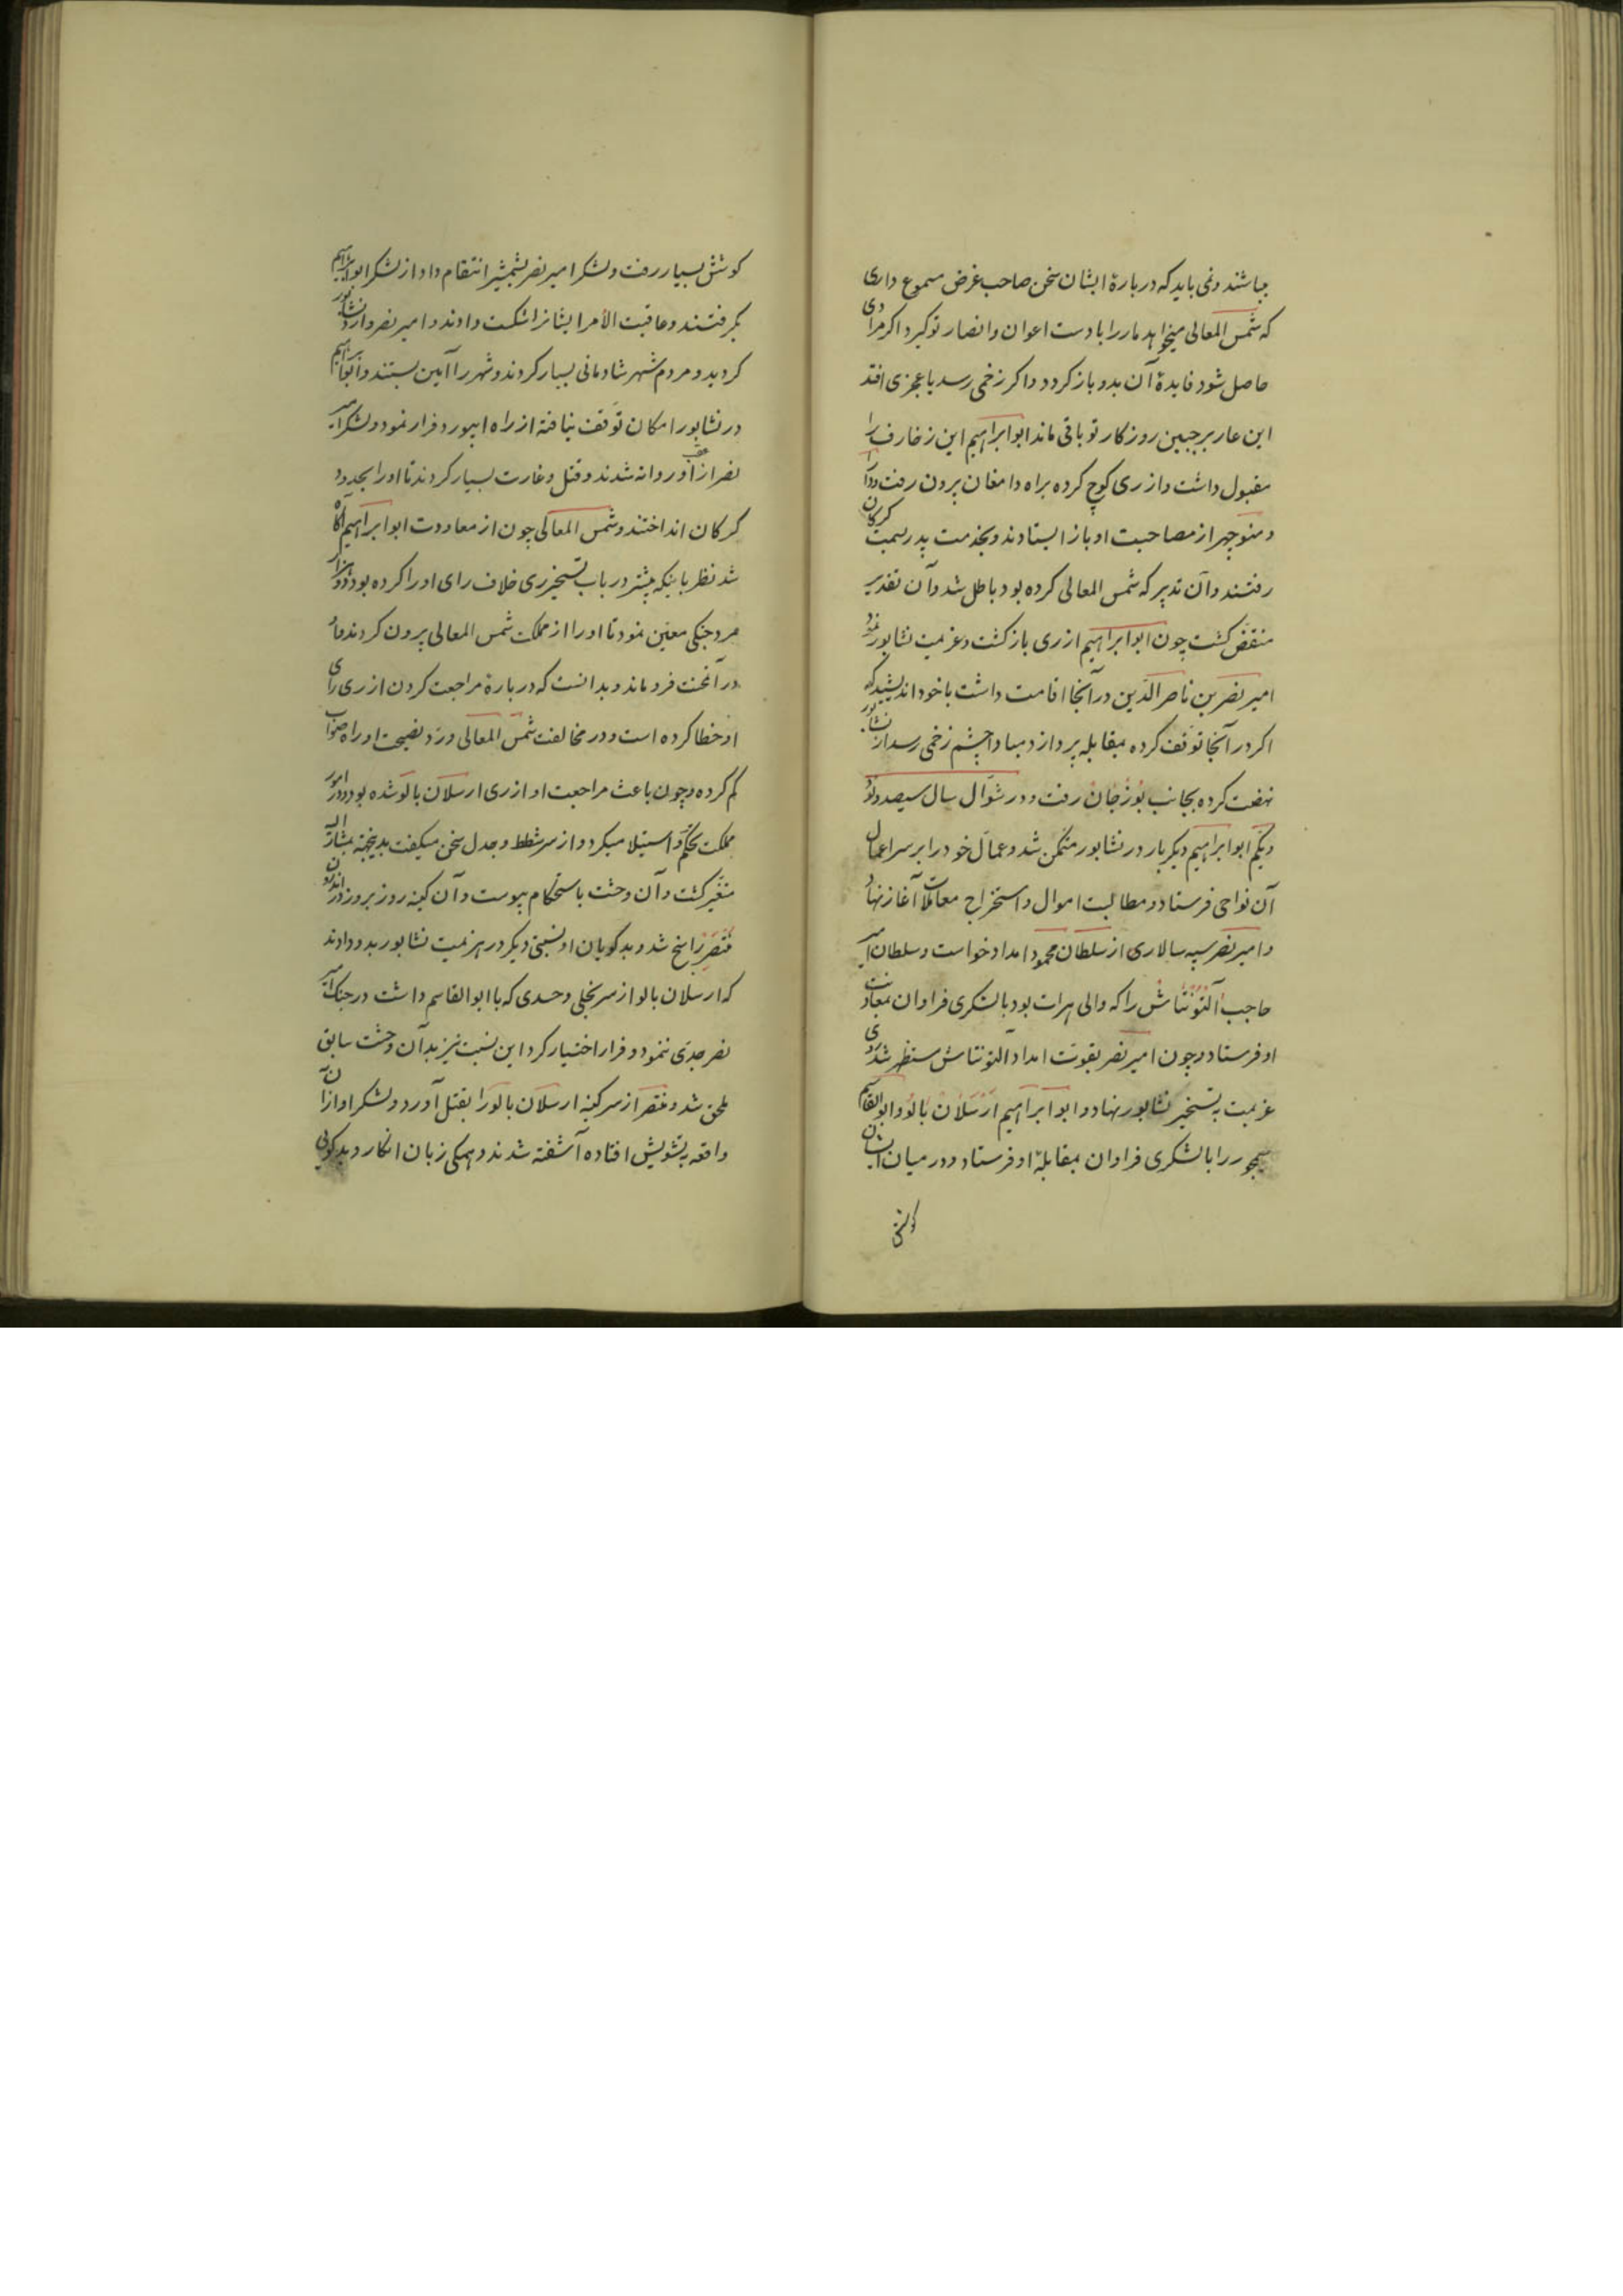 میباشند و نمی باید که در بارهٔ ایشان سخن صاحب غرض مسموع داری
که شمس المعالی میخواهد مار را با دست اعوان و انصار تو گیرد اگر مرادی
حاصل شود فایدهٔ آن بدو باز گردد و اگر زخمی رسد یا عجزی افتد
این عار بر جبین روزکار تو باقی ماند ابو ابراهیم این زخارف را
مقبول داشت و از ری کوچ کرده براه دامغان برون رفت و دارا
و منوچهر از مصاحبت او باز ایستادند و بخدمت پدر بسمت کرکان
رفتند و آن تدبیر که شمس المعالی کرده بود باطل شد و آن تقدیر
منقض کشت چون ابو ابراهیم از ری بازکشت و عزیمت نشابور نمود
امیر نصر بن ناصر الدین در آنجا اقامت داشت با خود اندیشید که
اکر در آنجا توقف کرده بمقابله پردازد مبادا چشم زخمی رسد از نشابور
نهضت کرده بجانب بوزجان رفت و در شوال سال سیصد و نود
و یکم ابو ابراهیم دیکر بار در نشابور متمکن شد و عمال خود را بر سر اعمال
آن نواحی فرستاد و مطالبت اموال و استخراج معاملات آغاز نهاد
و امیر نصر سپه سالاری از سلطان محمود امداد خواست و سلطان امیر
حاجب آلتونتاش را که والی هرات بود با لشکری فراوان بمعاونت
او فرستاد و چون امیر نصر بقوت امداد التونتاش مستظهر شد روی
عزیمت به تسخیر نشابور نهاد و ابو ابراهیم ارسلان بالو و ابو القاسم
سیمجور را با لشکری فراوان بمقابلهٔ او فرستاد و در میان ایشان
کوشش
کوشش بسیار رفت و لشکر امیر نصر بشمشیر انتقام داد از لشکر ابو ابراهیم
بکرفتند و عاقبت الأمر ایشانرا شکست دادند و امیر نصر وارد نشابور
کردید و مردم شهر شادمانی بسیار کردند و شهر را آیین بستند و ابو ابراهیم
در نشابور امکان توقف نیافته از راه ابیورد فرار نمود و لشکر امیر
نصر از عقب او روانه شدند و قتل و غارت بسیار کردند تا او را بحدود
کرکان انداختند و شمس المعالی چون از معاودت ابو ابراهیم آگاه
شد نظر باینکه پیشتر در باب تسخیر ری خلاف رای او را کرده بود دو هزار
مرد جنگی معین نمود تا او را از مملکت شمس المعالی برون کردند و او
در آن محنت فرو ماند و بدانست که در بارهٔ مراجعت کردن از ری رای
او خطا کرده است و در مخالفت شمس المعالی و رد نصیحت او راه صواب
کم کرده و چون باعث مراجعت او از ری ارسلان بالو شده بود و در امور
مملکت تحکم و استیلا میکرد و از سر شطط و جدل سخن میکفت بدینجهة بیشتر از آن
متغیر کشت و آن وحشت باستحکام پیوست و آن کینه روز بروز در اندرون
منتصر راسخ شد و بدگویان او نسبتی دیکر در هزیمت نشابور بدو دادند
که ارسلان بالو از سر بخلی و حسدی که با ابو القاسم داشت در جنک امیر
نصر جدی ننمود و فرار اختیار کرد این نسبت نیز بدآن وحشت سابق
ملحق شد و منتصر از سر کینه ارسلان بالو را بقتل آورد و لشکر او از آن
واقعه به تشویش افتاده آشفته شدند و همکی زبان انکار و بدگوئی